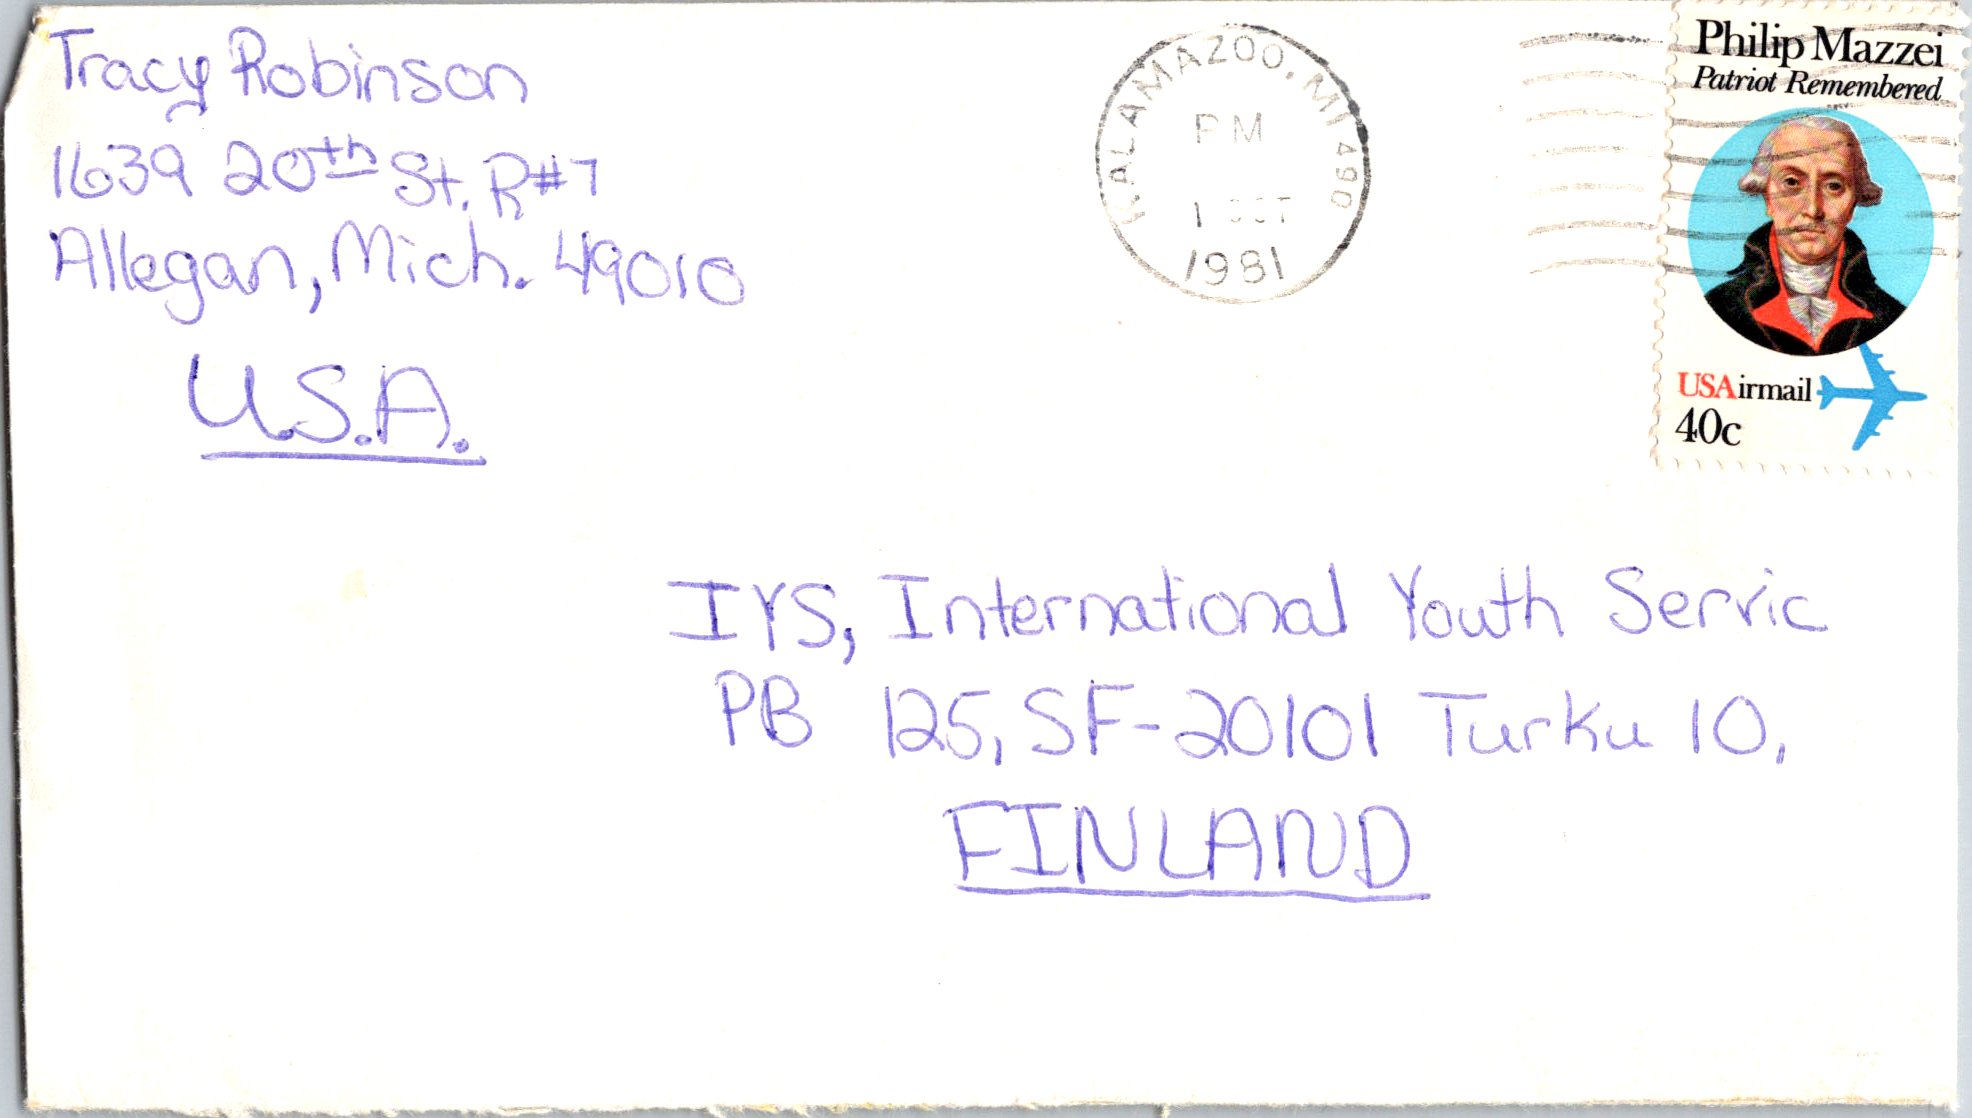 Tracy Robinson
1639 20th St. R#7
Allegan, Mich. 49010
U.S.A.
KALAMAZOO, MI 490
PM
1 OCT
1981
Philip Mazzei
Patriot Remembered
USAirmail
40c
IYS, International Youth Servic
PB 125, SF-20101 Turku 10,
FINLAND